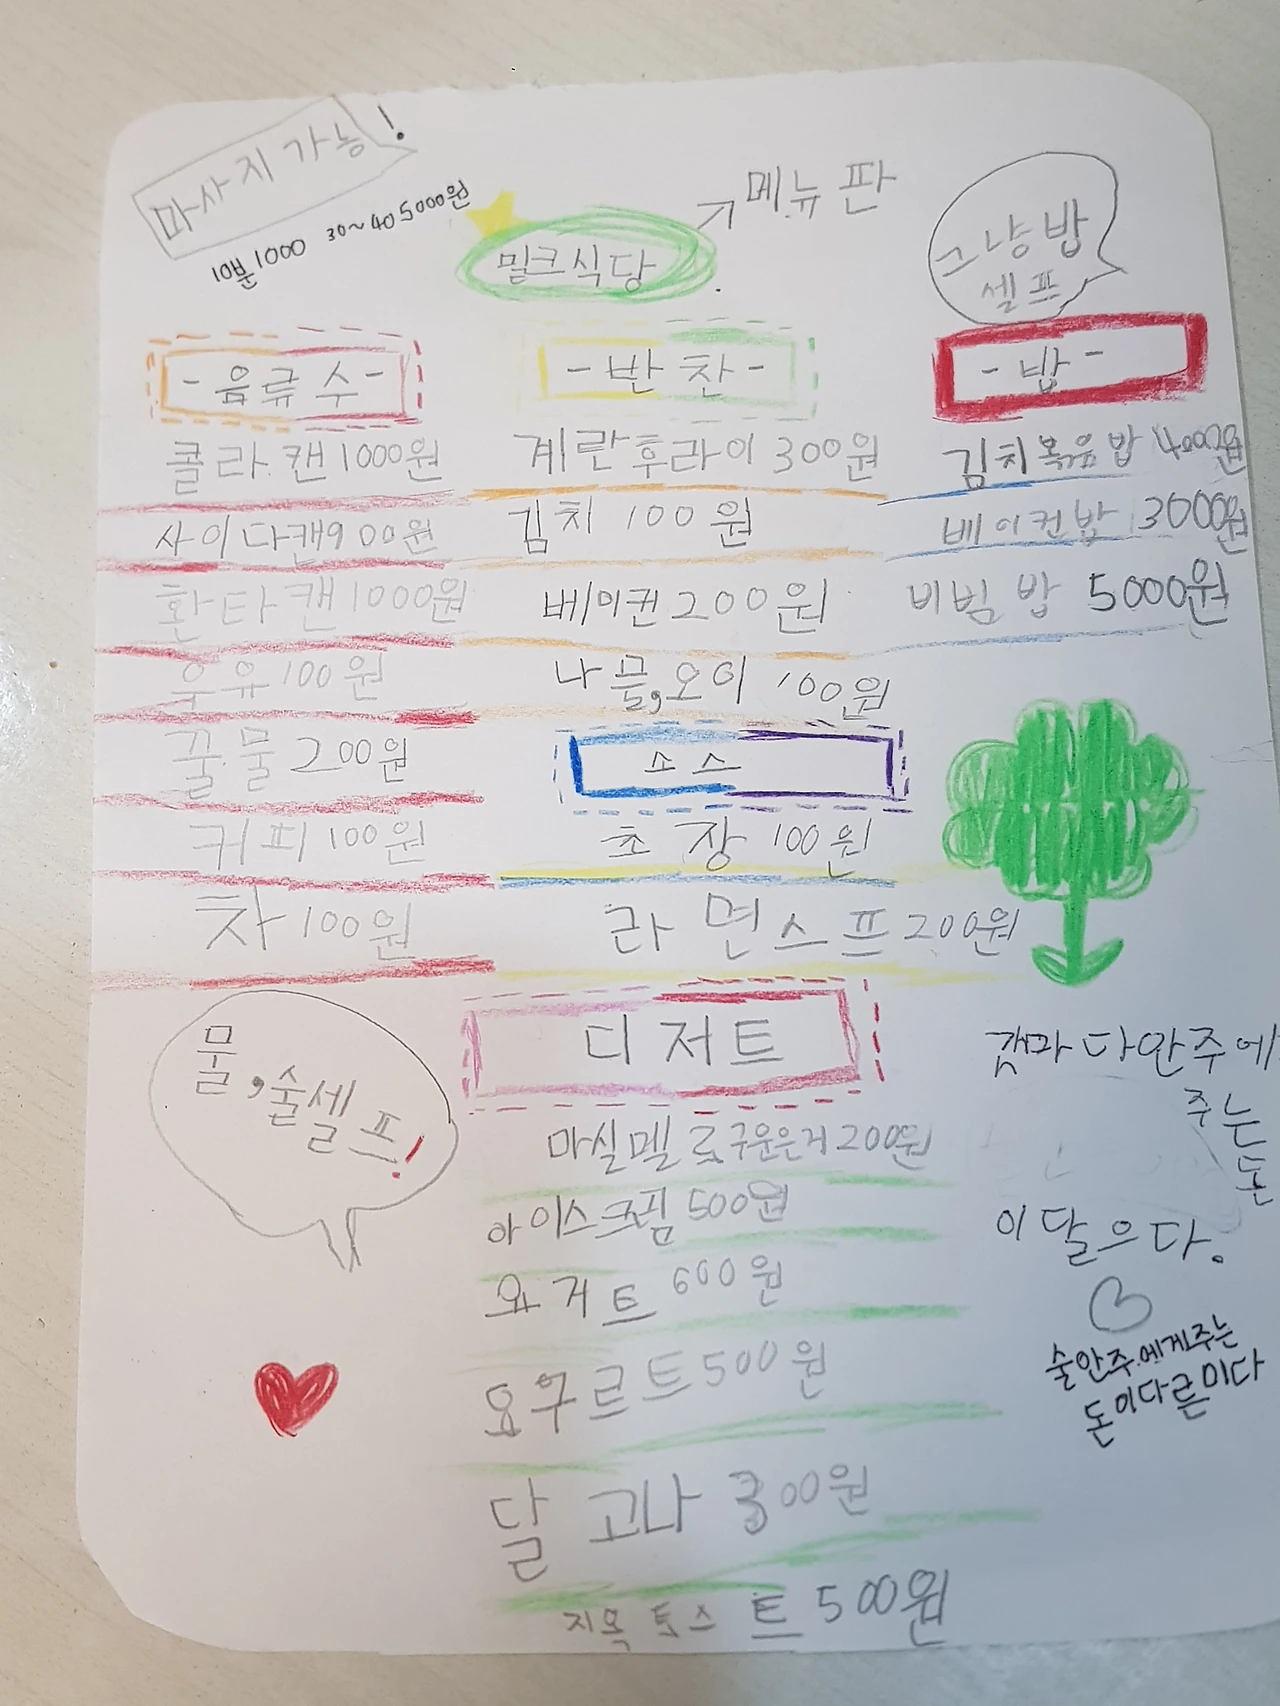 마사지 가능!
10분 1000 30~40 5000원
밀크식당
↗ 메뉴판
그냥밥
셀프
-음류수-
콜라.캔 1000원
사이다캔 900원
환타캔 1000원
우유 100원
꿀.물 200원
커피 100원
차 100원
물, 술셀프!
-반찬-
계란후라이 300원
김치 100원
베이컨 200원
나물,오이 100원
소스
초장 100원
라면스프 200원
디저트
마실멜로구운은거 200원
아이스크림 500원
요거트 600원
요구르트 500원
달고나 300원
토스트 500원
-밥-
김치볶음밥 4000원
베이컨밥 3000원
비빔밥 5000원
마다안주에
주는돈
이달으다.
술안주.에게주는
돈이다른미다